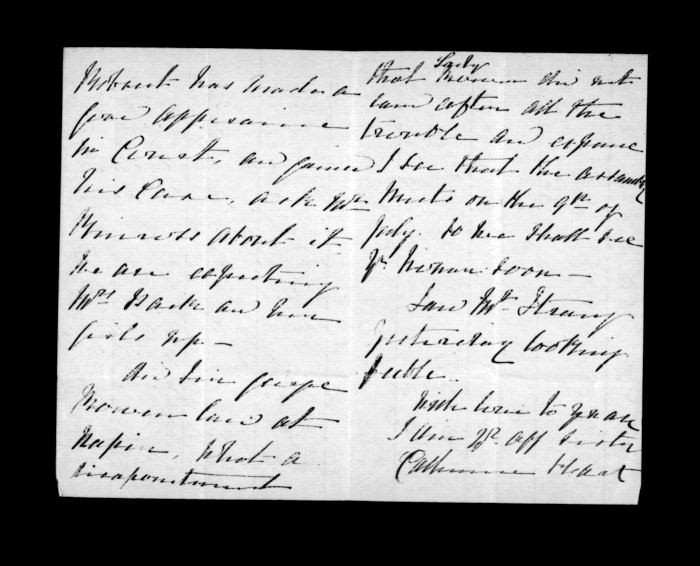 Robart has made a
good appearance
in Court, an gained
his Case, ask Mr
about it
We are expecting
Mrs Isack an her
girls up —
did Sir George
Bowen land at
Napier, what a
disapointment
Lady
that Bowen did not
land after all the
trouble and expence
I see that the assembly
Meets on the 9th of
July. so we shall see
yr soon —
Saw Mr Strang
yesterday looking
feeble.
With love to you all
I am yr aff sister
Catherine Hart